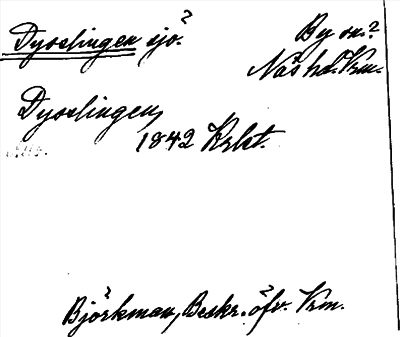 Dyoslingen sjö.
By sn.
Näs hd. Vrm.
Dyoslingen,
1842 Krkt.
Björkman, Beskr. öfv. Vrm.